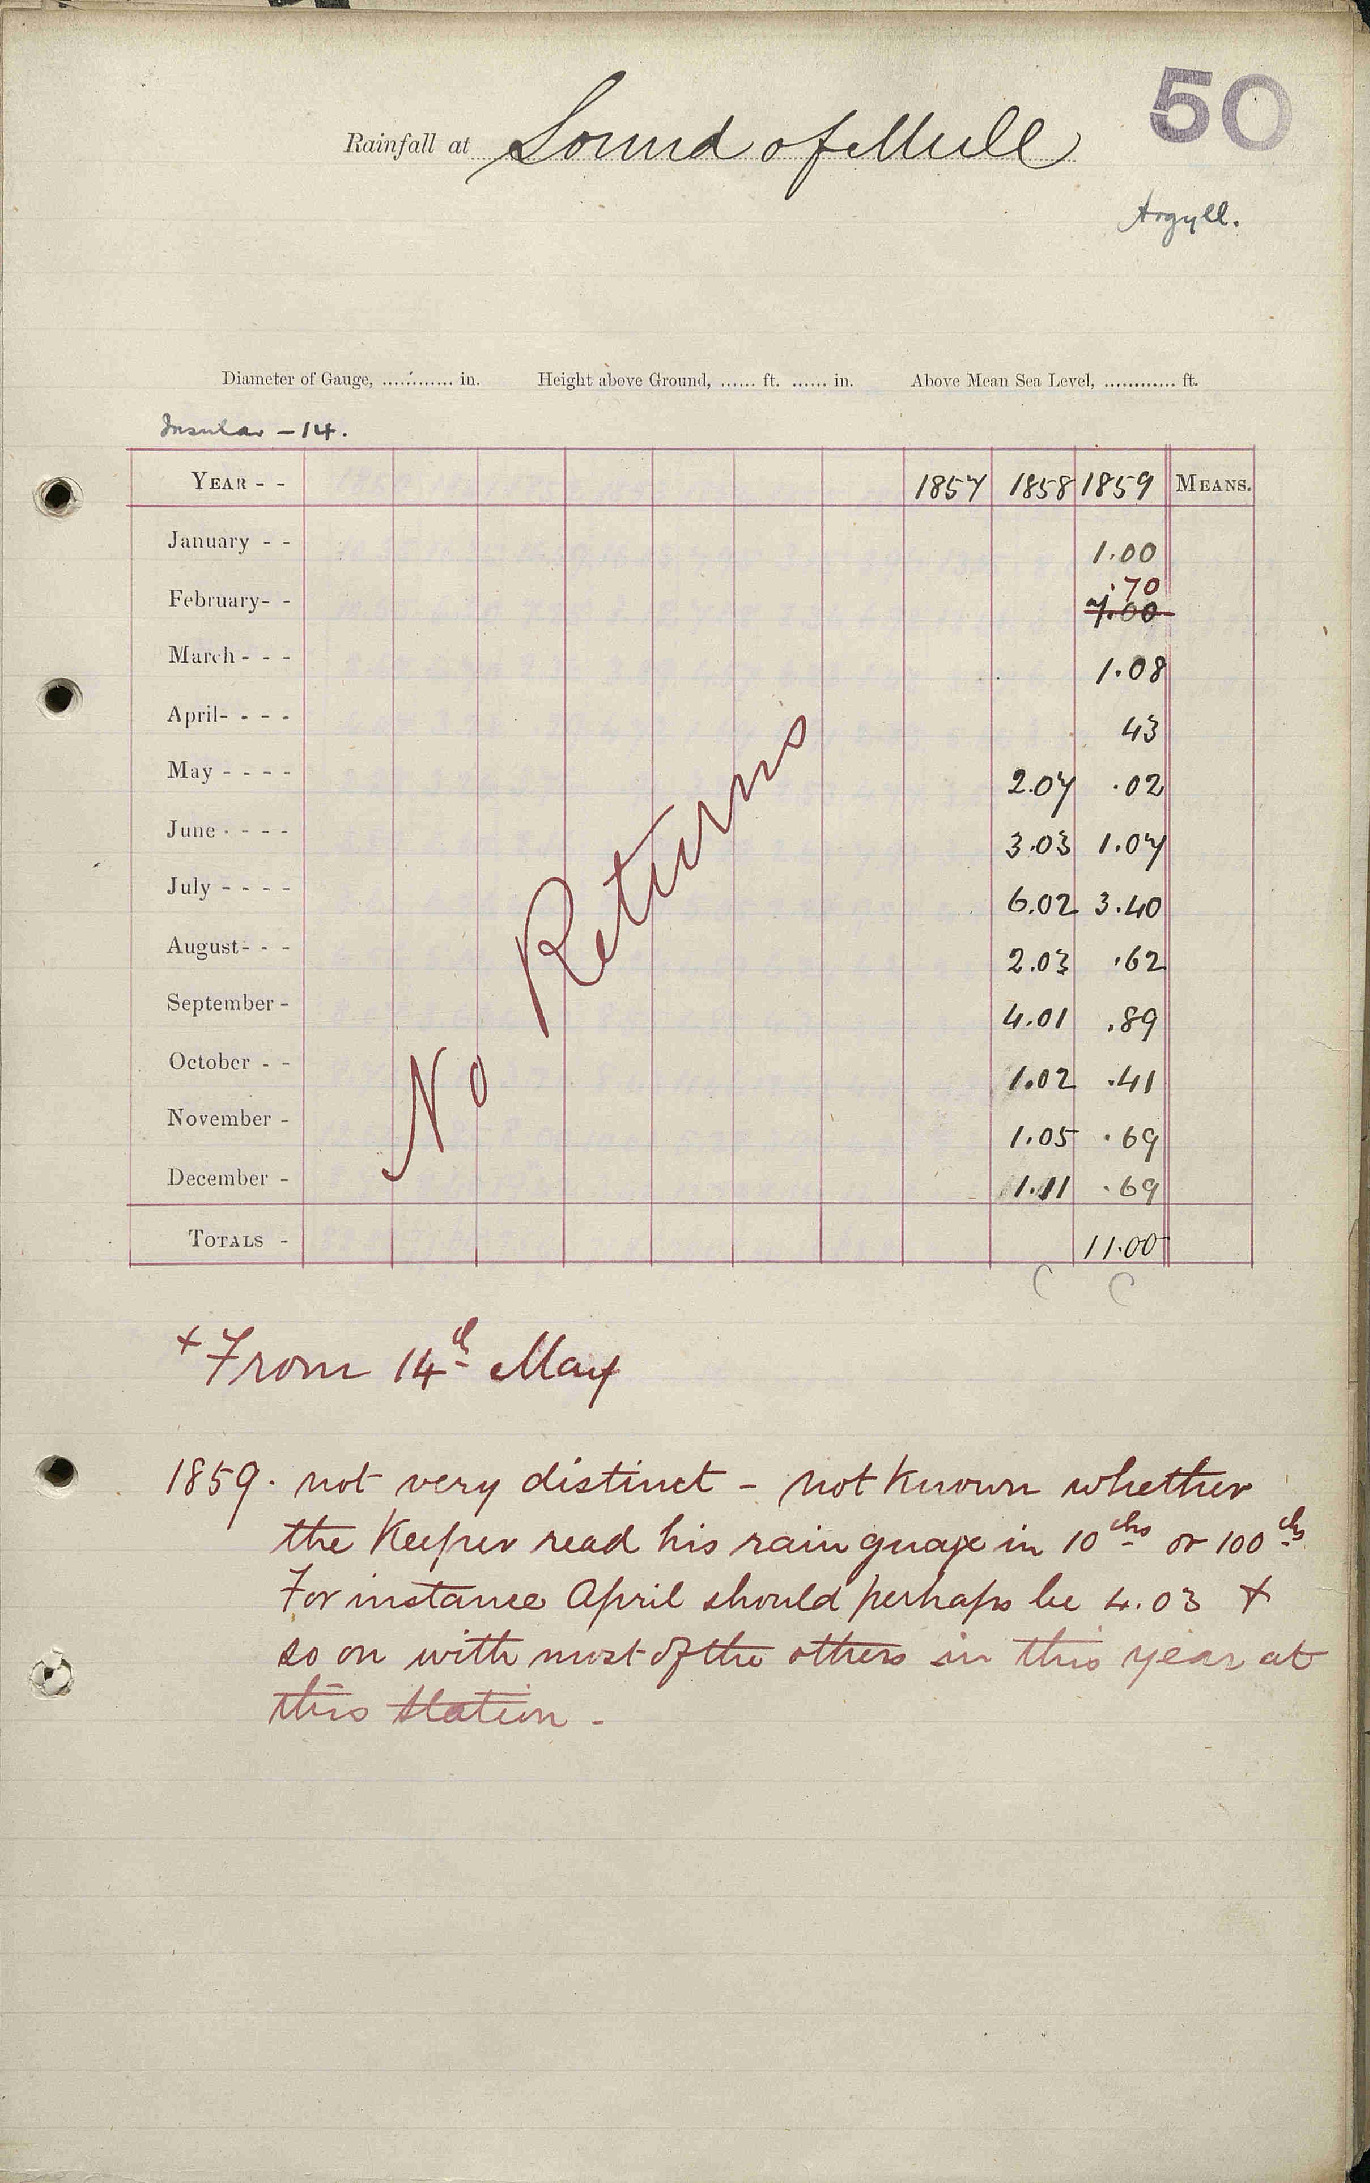 50
Rainfall at Sound of Mull
Argyll.
Diameter of Gauge, ............ in. Height above Ground, ...... ft. ...... in. Above Mean Sea Level, ............ ft.
Insular - 14.
YEAR - - 1857 1858 1859 MEANS.
January - - 1.00
.70
February- - 7.00
March - - - 1.08
April- - - - 43
May - - - - 2.07 .02
June - - - - 3.03 1.07
July - - - - 6.02 3.40
August- - - 2.03 .62
September - 4.01 .89
October - - 1.02 .41
November - 1.05 .69
December - 1.11 .69
TOTALS - 11.00
No Returns
C C
+ From 14th May
1859. not very distinct - not known whether
the Keeper read his rain guage in 10ths or 100ths
For instance April should perhaps be 4.03 +
so on with most of the others in this year at
this station -